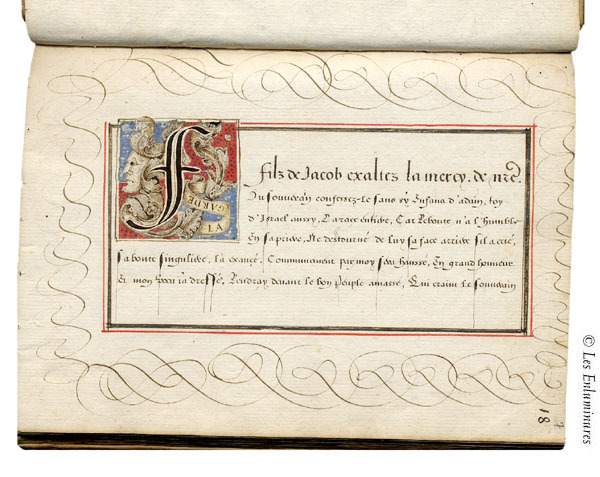 GARDE
F
filz de Jacob exaltez sa mercy, de nre
Du souverain confessez-le sans sy Enfans d'adam, toy
d'Israel aussy, La race entiere, Car Reboute n'a l'humble
En sa priere, Ne destourné de luy sa face arriere sil a crié,
sa bonte singuliere, La exaucé. Communement par moy sera haussé, En grand honneur
Et mon Voeu ia dressé, Rendray devant le bon peuple amassé, Qui craint le souverain
18
© Les Enluminures